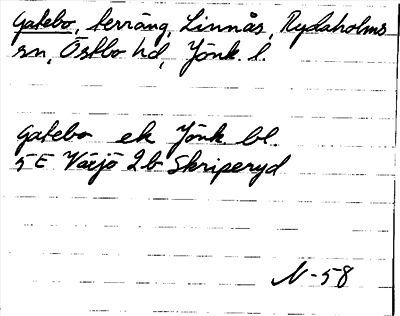 Gatebo, terräng, Linnås, Rydaholms
sn, Östbo hd, Jönk. l.
Gatebo ek Jönk. bl.
5 E Växjö 2b Skriperyd
N-58